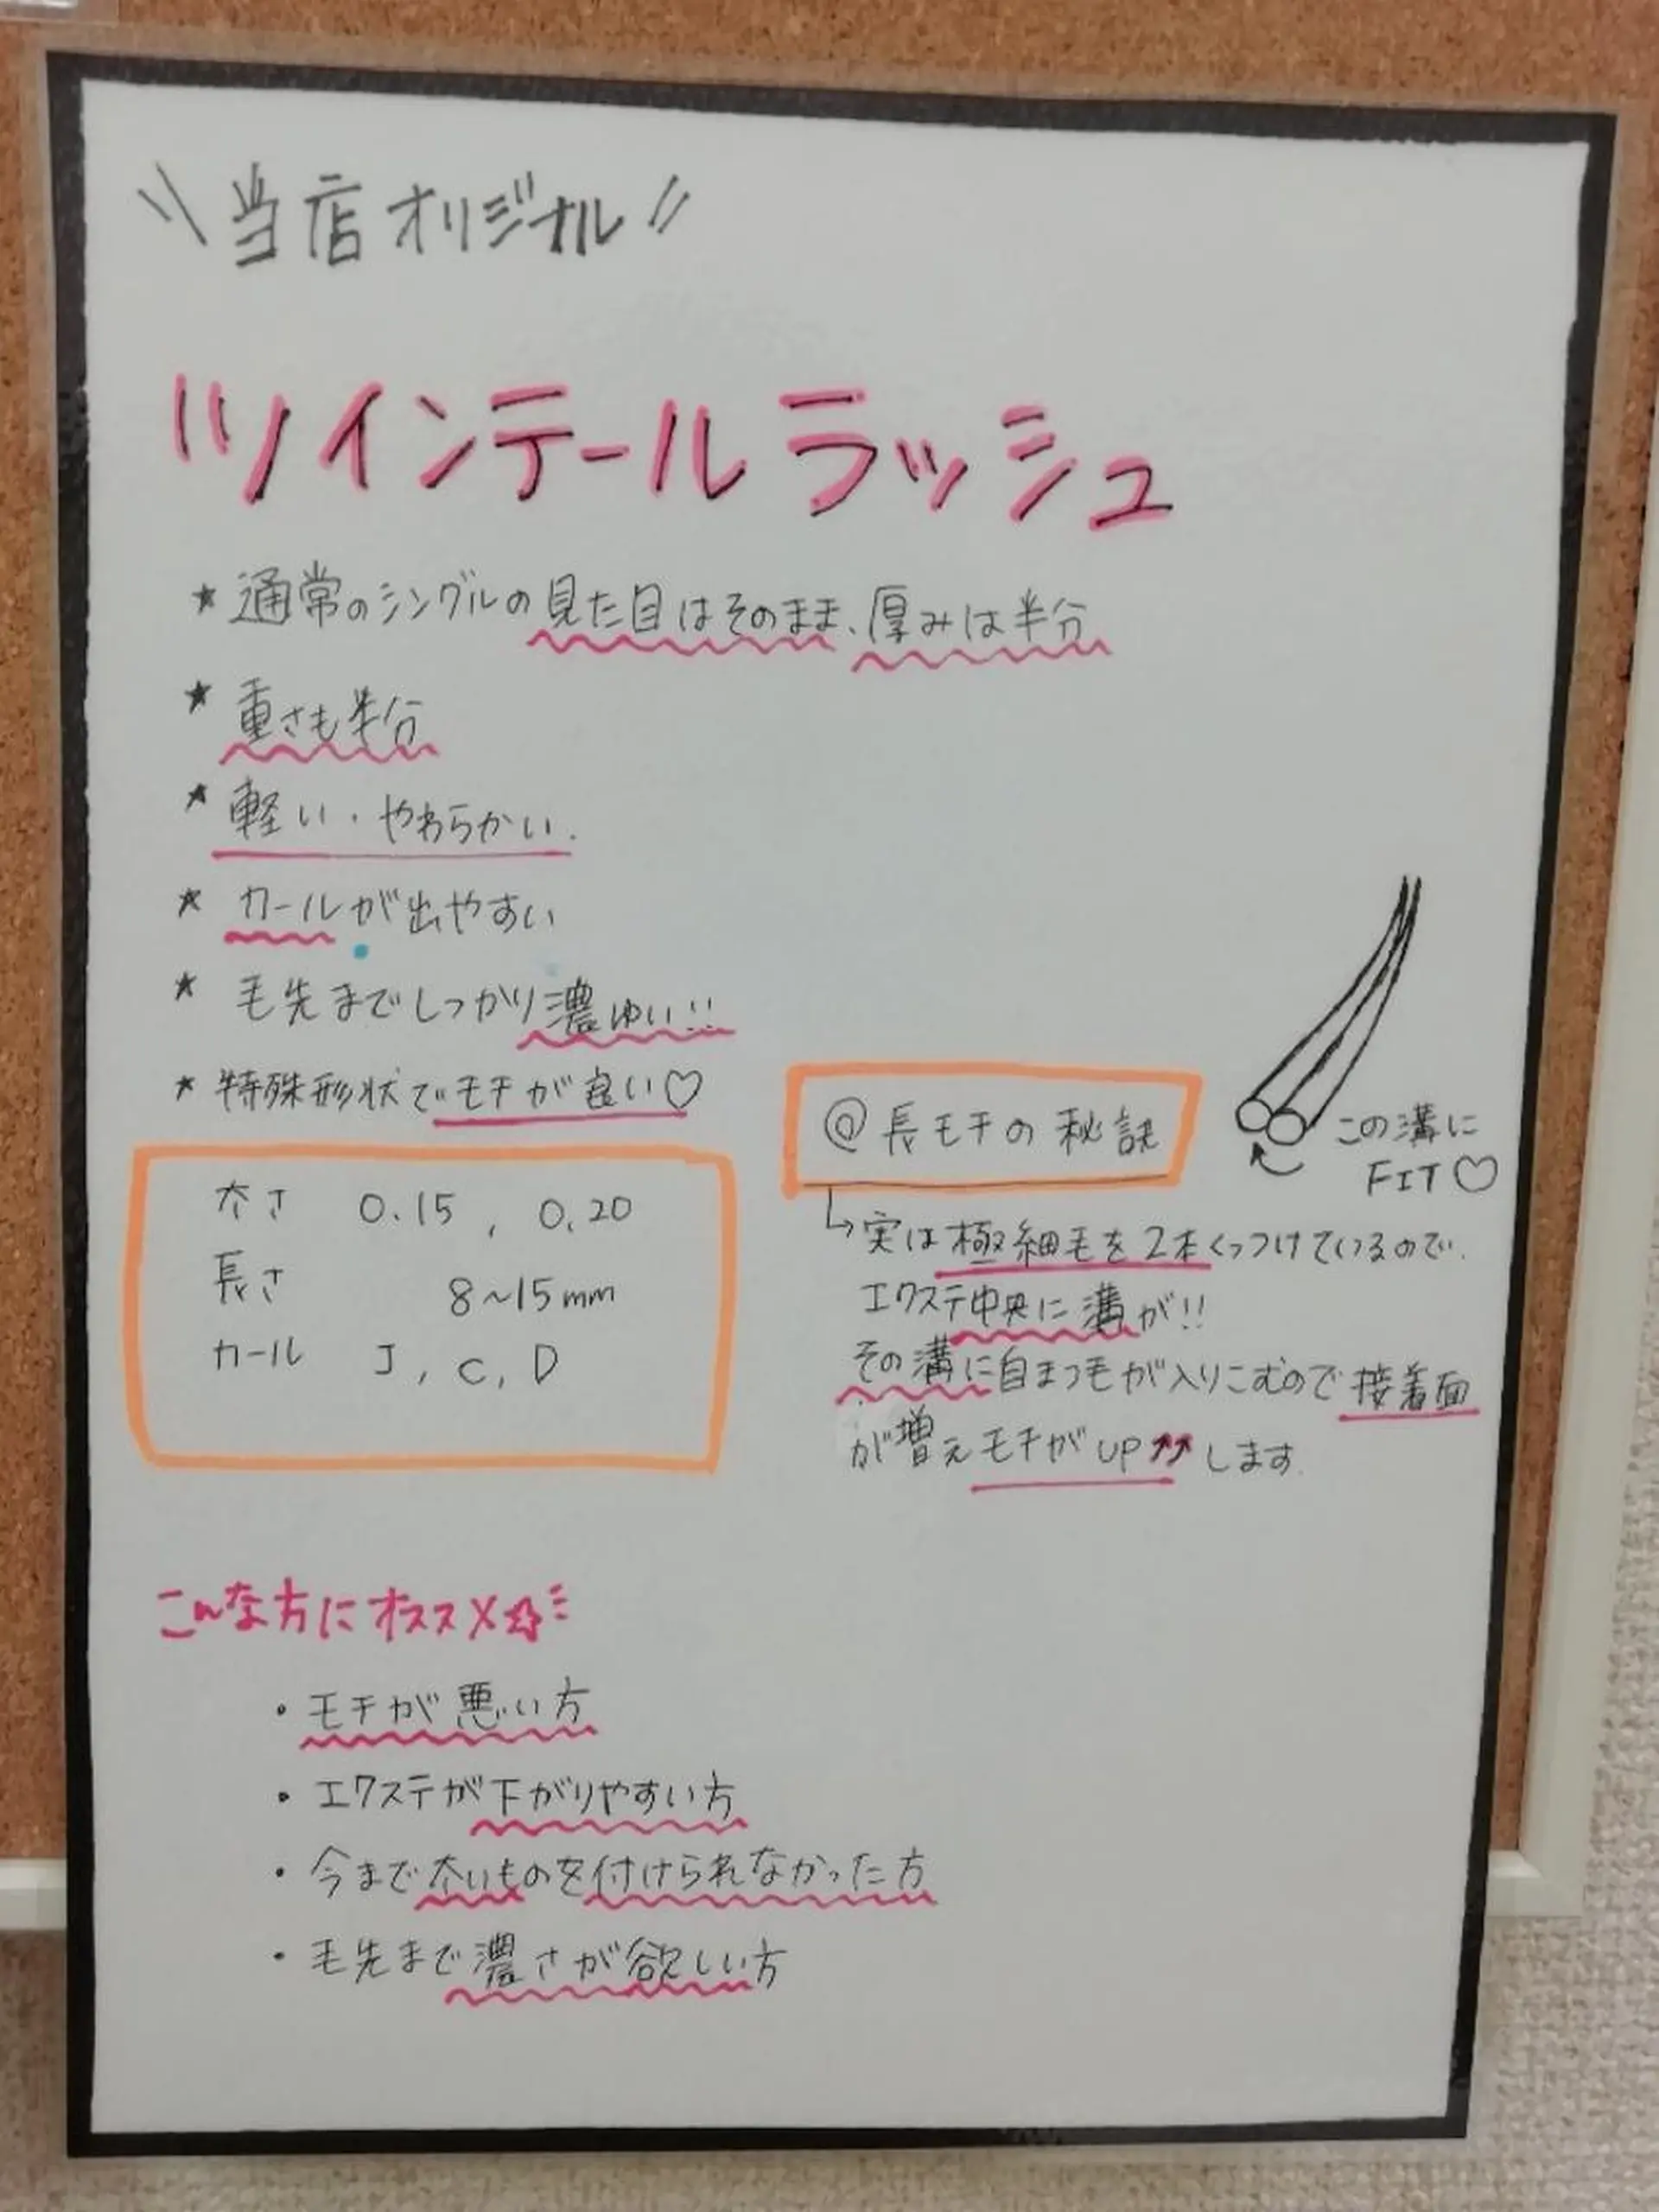 \\ 当店オリジナル //
ツインテールラッシュ
★ 通常のシングルの見た目はそのまま、厚みは半分
★ 重さも半分
★ 軽い・やわらかい.
★ カールが出やすい
★ 毛先までしっかり濃ゆい!!
★ 特殊形状でモチが良い♡
太さ 0.15, 0.20
長さ 8~15mm
カール J, C, D
@長モチの秘訣
この溝に
FIT♡
↳実は極細毛を2本くっつけているので.
エクステ中央に溝が!!
その溝に自まつ毛が入りこむので接着面
が増えモチがUP↑↑します.
こんな方にオススメ☆
・モチが悪い方
・エクステが下がりやすい方
・今まで太いものを付けられなかった方
・毛先まで濃さが欲しい方